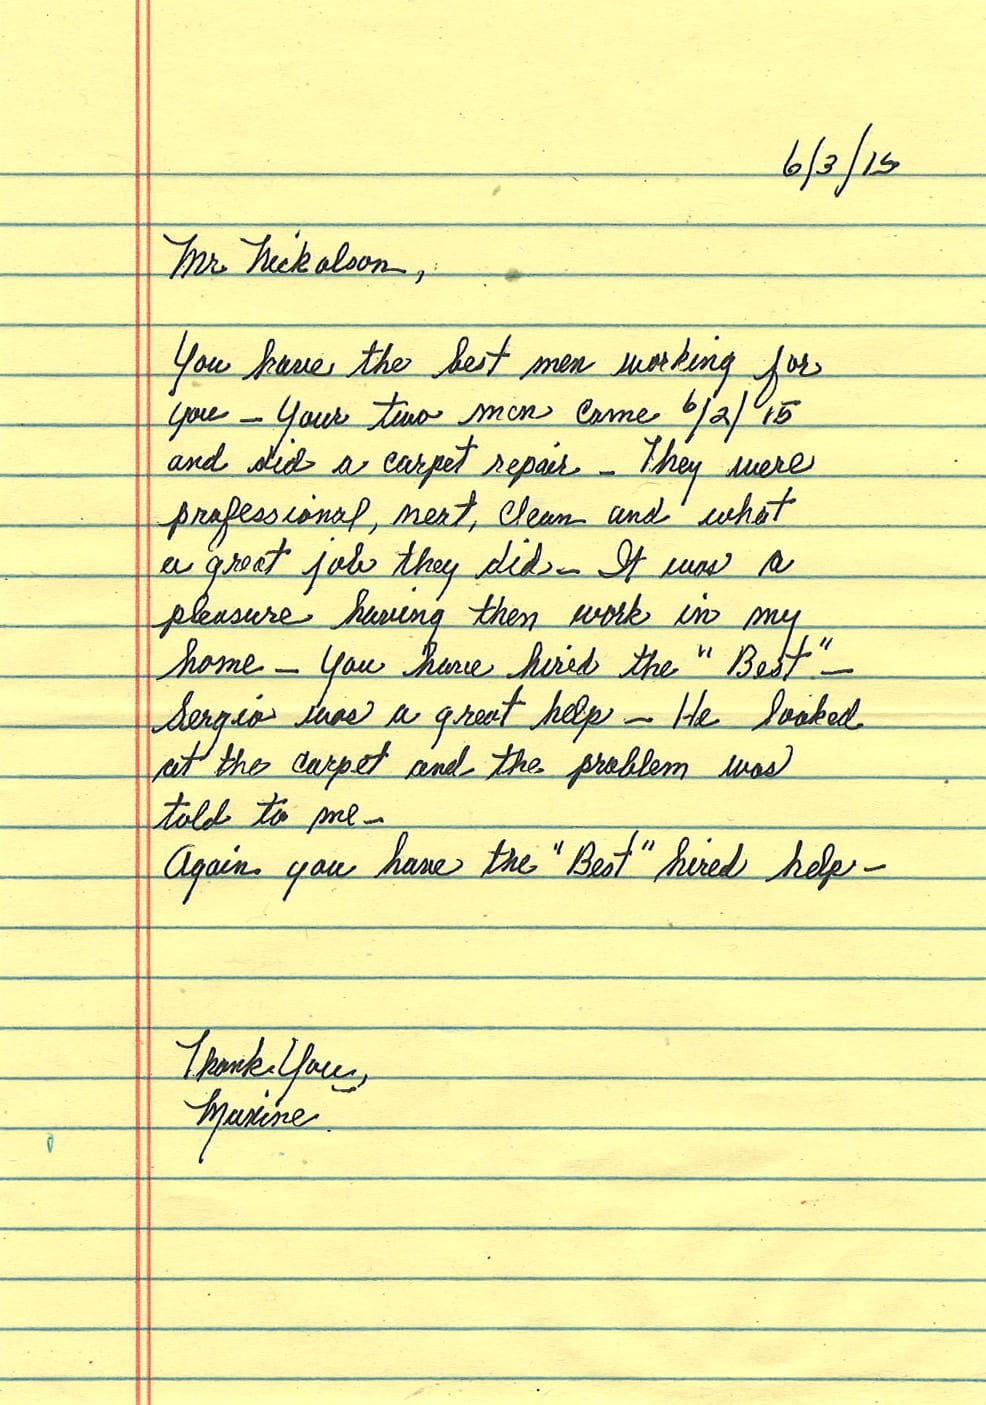 6/3/15
Mr. Nickolson,
You have the best men working for
you - Your two men came 6/2/15
and did a carpet repair - They were
professional, neat, clean and what
a great job they did - It was a
pleasure having them work in my
home - You have hired the "Best" -
Sergio was a great help - He looked
at the carpet and the problem was
told to me -
Again you have the "Best" hired help -
Thank You,
Maxine